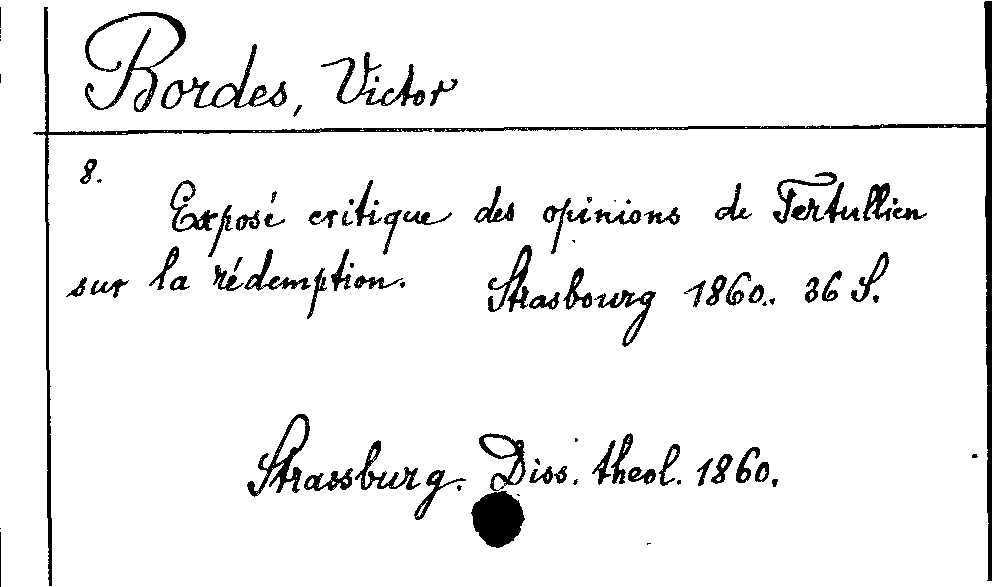 Bordes, Victor
8.
Exposé critique des opinions de Tertullien
sur la rédemption. Strasbourg 1860. 36 S.
Strassburg. Diss. theol. 1860.